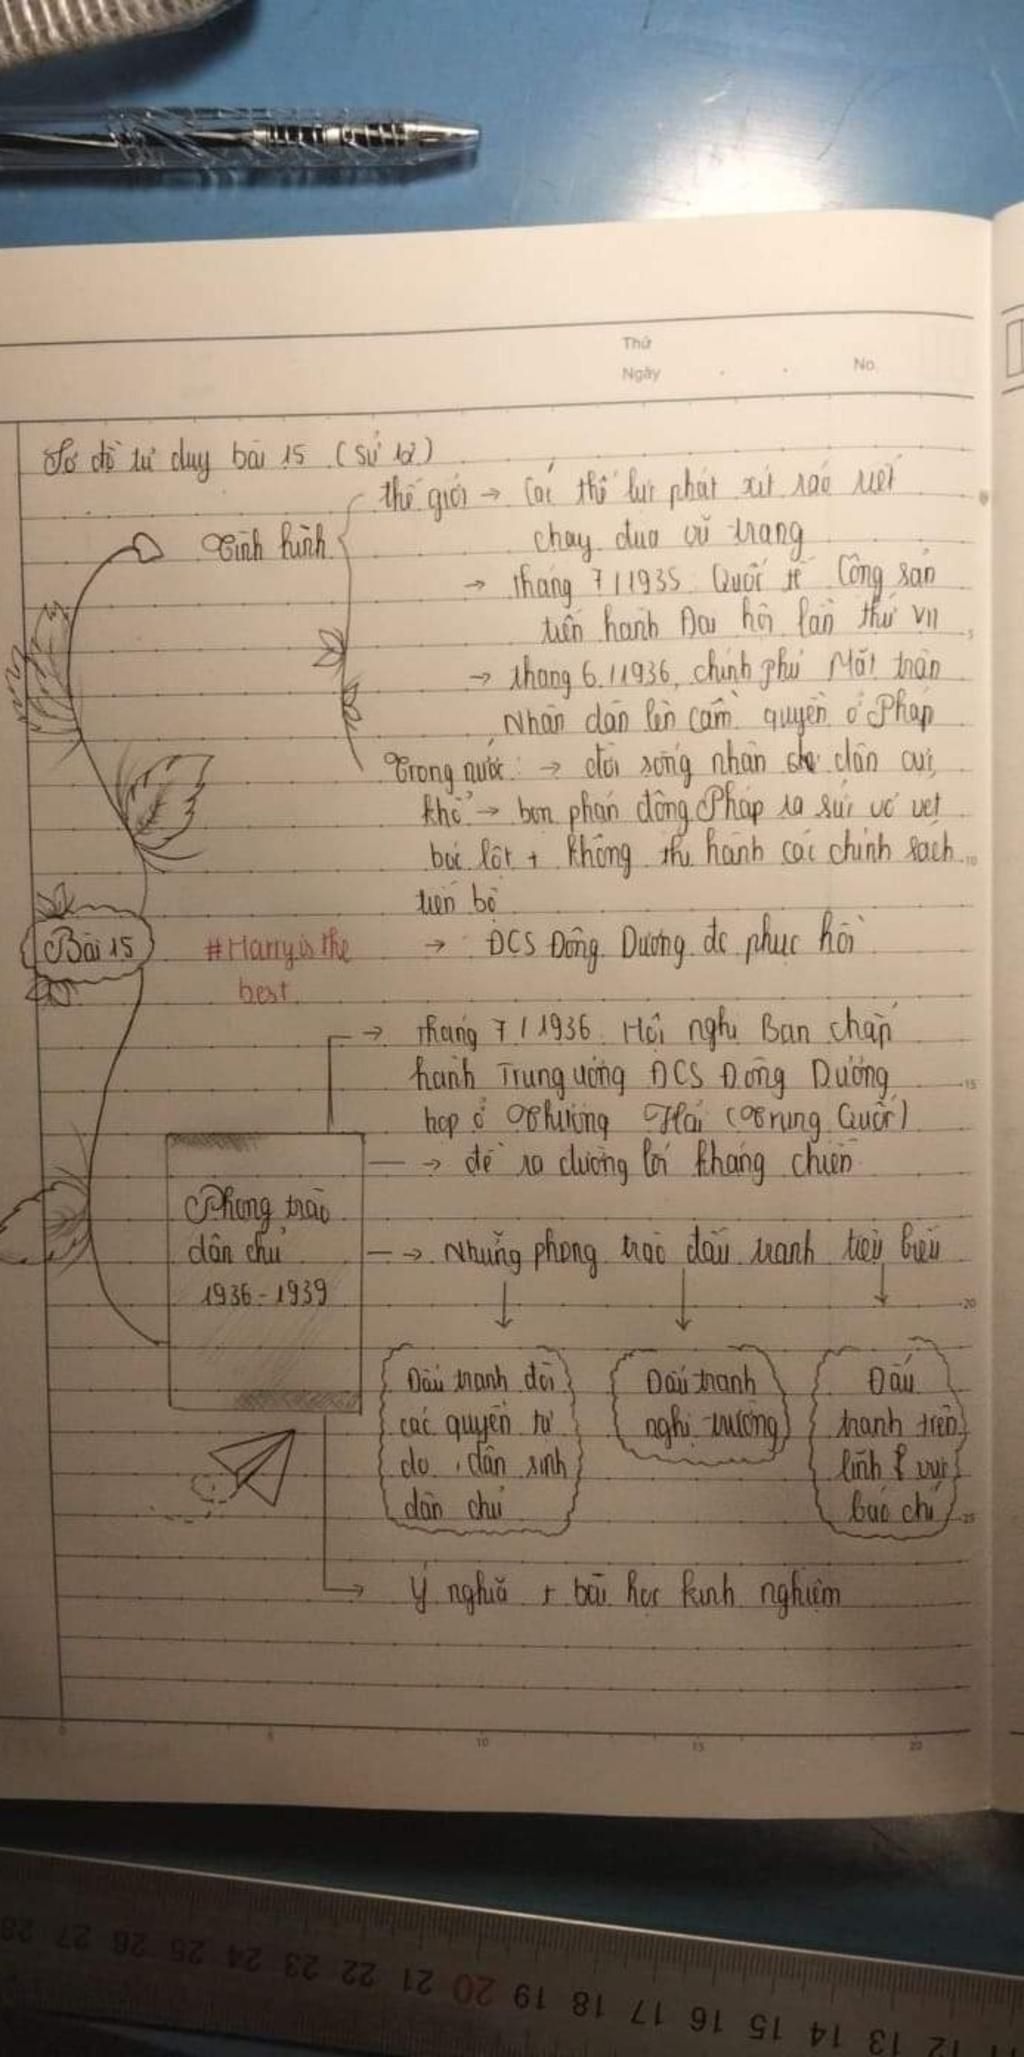 Thứ
Ngày
No.
Sơ đồ tư duy bài 15 (Sử 12)
thế giới → Các thế lực phát xít ráo riết
chạy đua vũ trang
Tình hình
→ tháng 7/1935 Quốc tế Cộng sản
tiến hành Đại hội lần thứ VII
→ tháng 6/1936, chính phủ Mặt trận
Nhân dân lên cầm quyền ở Pháp
Trong nước: → đời sống nhân dân cực
khổ → bọn phản động Pháp ra sức vơ vét
bóc lột + không thi hành các chính sách
tiến bộ
Bài 15
#Harry is the
best
→ ĐCS Đông Dương đc phục hồi
→ tháng 7/1936 Hội nghị Ban chấp
hành Trung ương ĐCS Đông Dương
họp ở Thượng Hải (Trung Quốc)
→ đề ra đường lối kháng chiến
Phong trào
dân chủ
1936-1939
→ Những phong trào đấu tranh tiêu biểu
Đấu tranh đòi
các quyền tự
do, dân sinh
dân chủ
Đấu tranh
nghị trường
Đấu
tranh trên
lĩnh vực
báo chí
→ Ý nghĩa + bài học kinh nghiệm
5
10
15
20
25
0
5
10
15
20
28 27 26 25 24 23 22 21 20 19 18 17 16 15 14 13 12 11